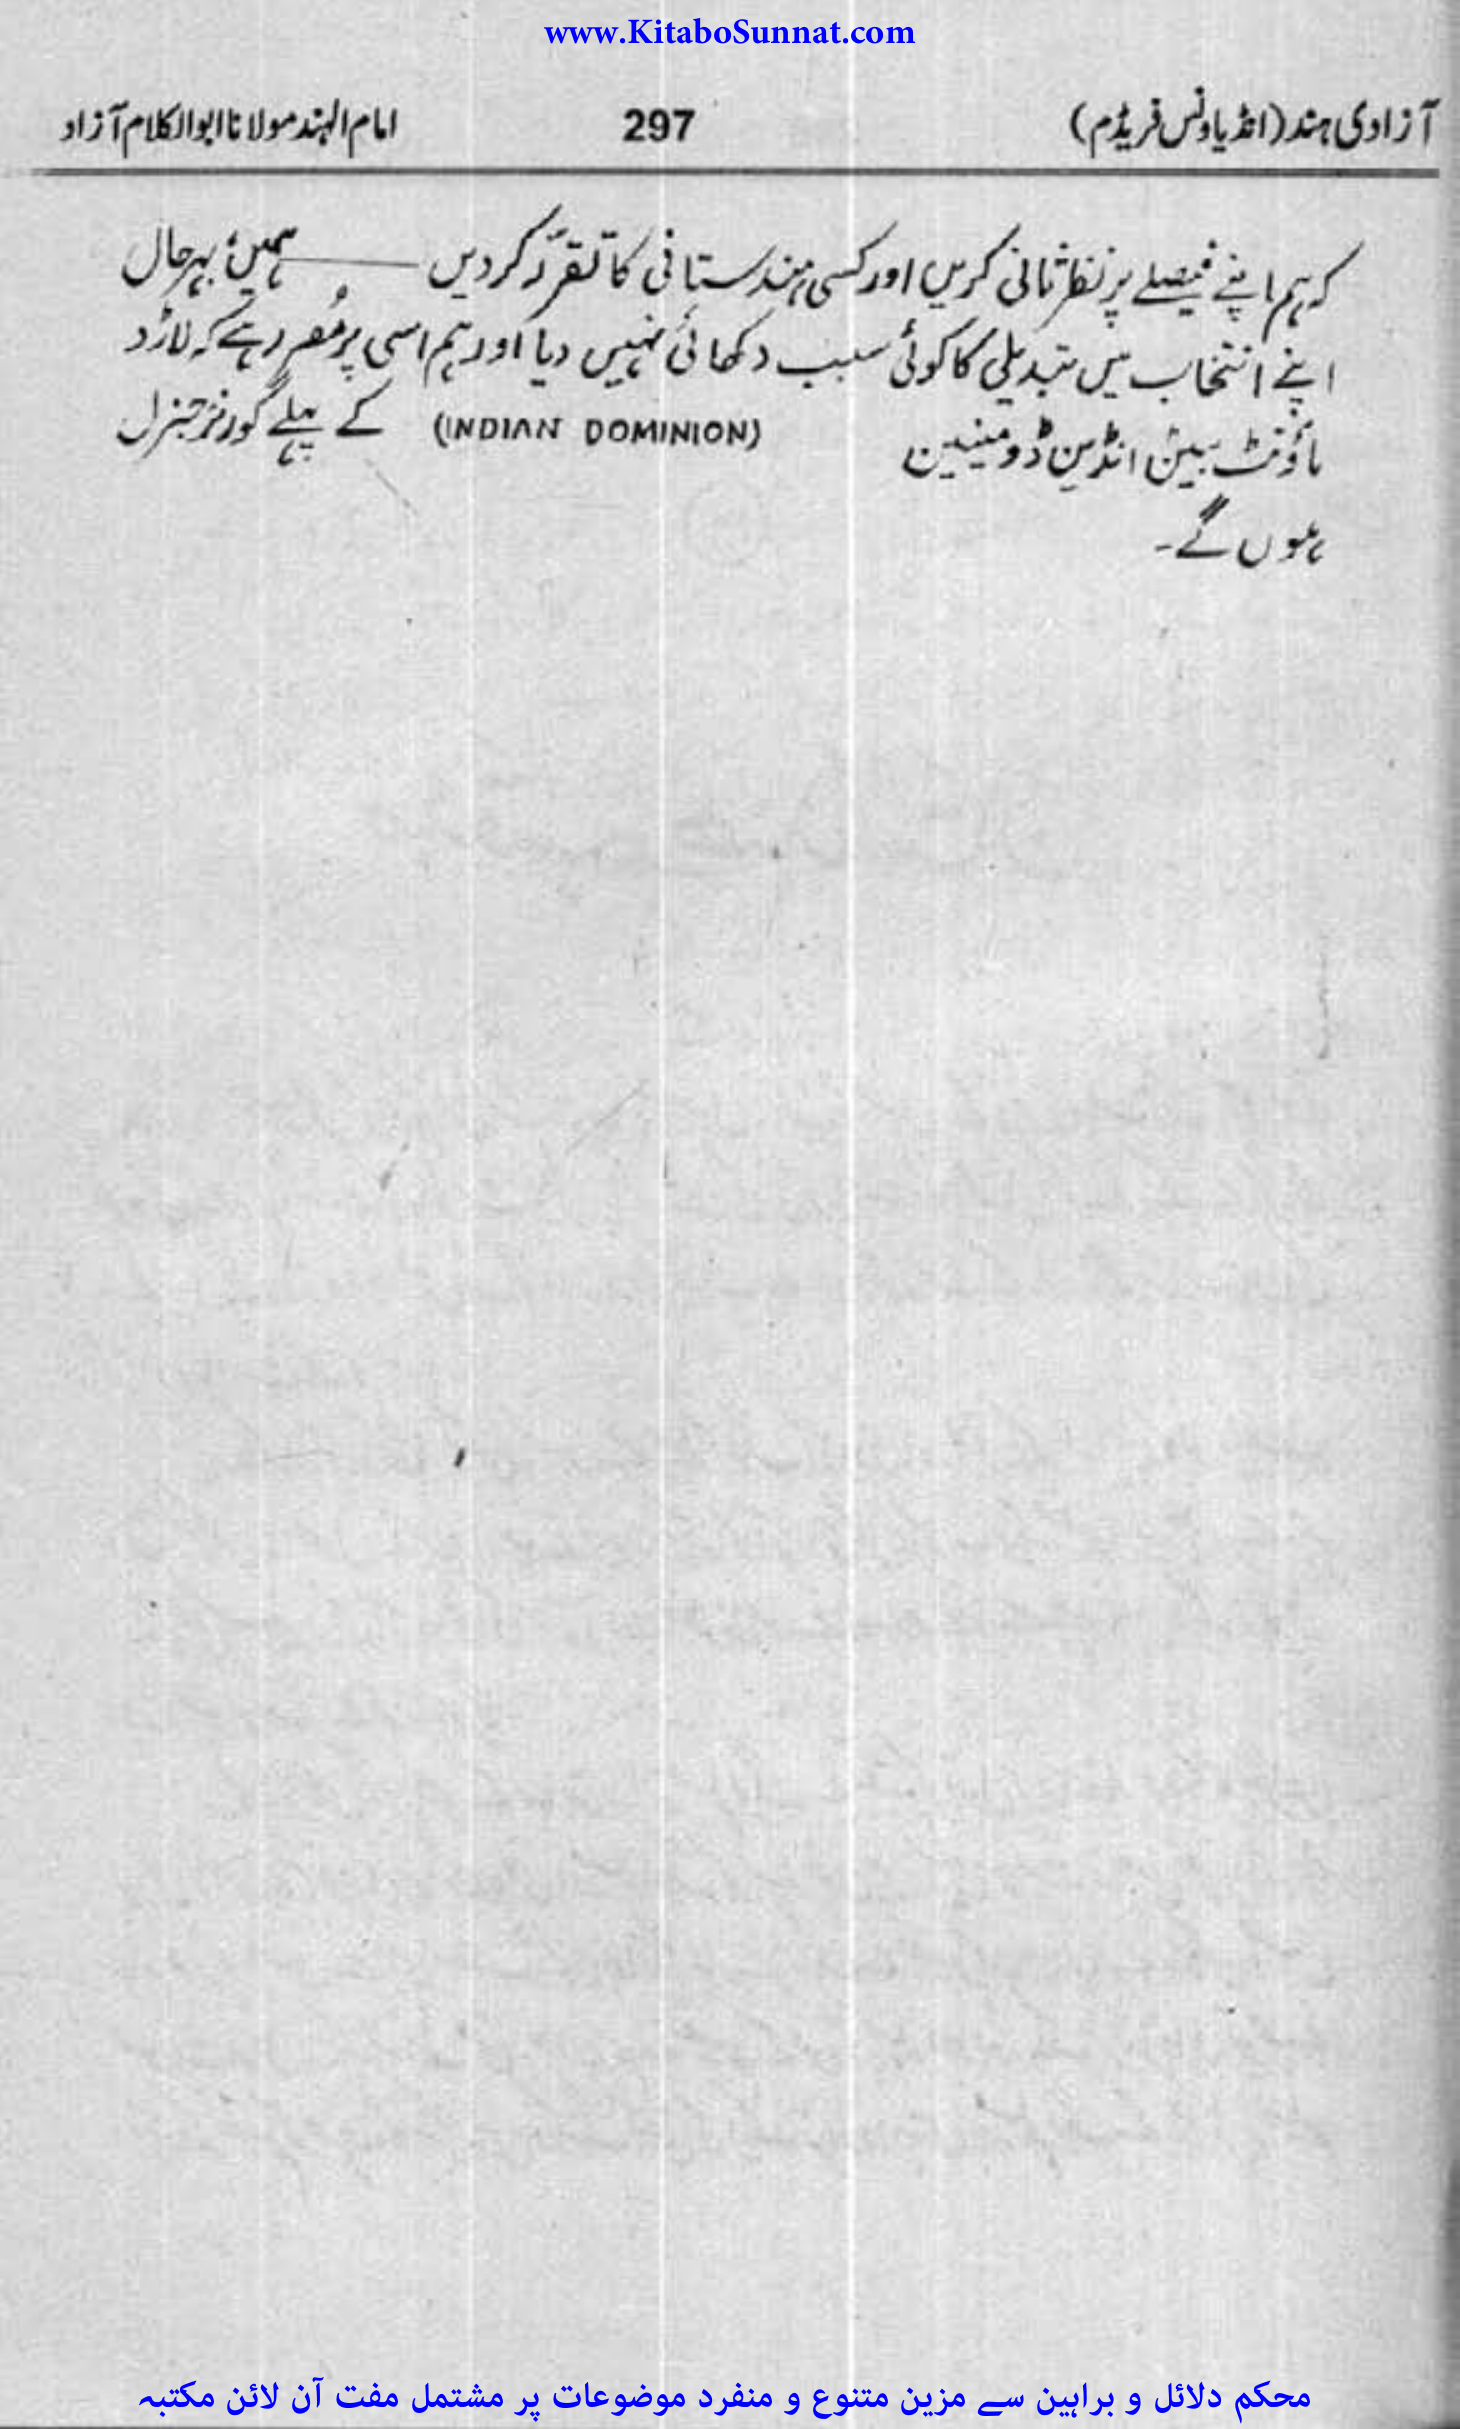 www.KitaboSunnat.com
آزادی ہند (انڈیا ونس فریڈم) 297 امام الہند مولانا ابوالکلام آزاد
کہ ہم اپنے فیصلے پر نظر ثانی کریں اور کسی ہندستانی کا تقرّر کر دیں ——— ہمیں، بہرحال
اپنے انتخاب میں تبدیلی کا کوئی سبب دکھائی نہیں دیا اور ہم اسی پر مُصر رہے کہ لارڈ
ماؤنٹ بیٹن انڈین ڈومینین (INDIAN DOMINION) کے پہلے گورنر جنرل
ہوں گے۔
محکم دلائل و براہین سے مزین متنوع و منفرد موضوعات پر مشتمل مفت آن لائن مکتبہ